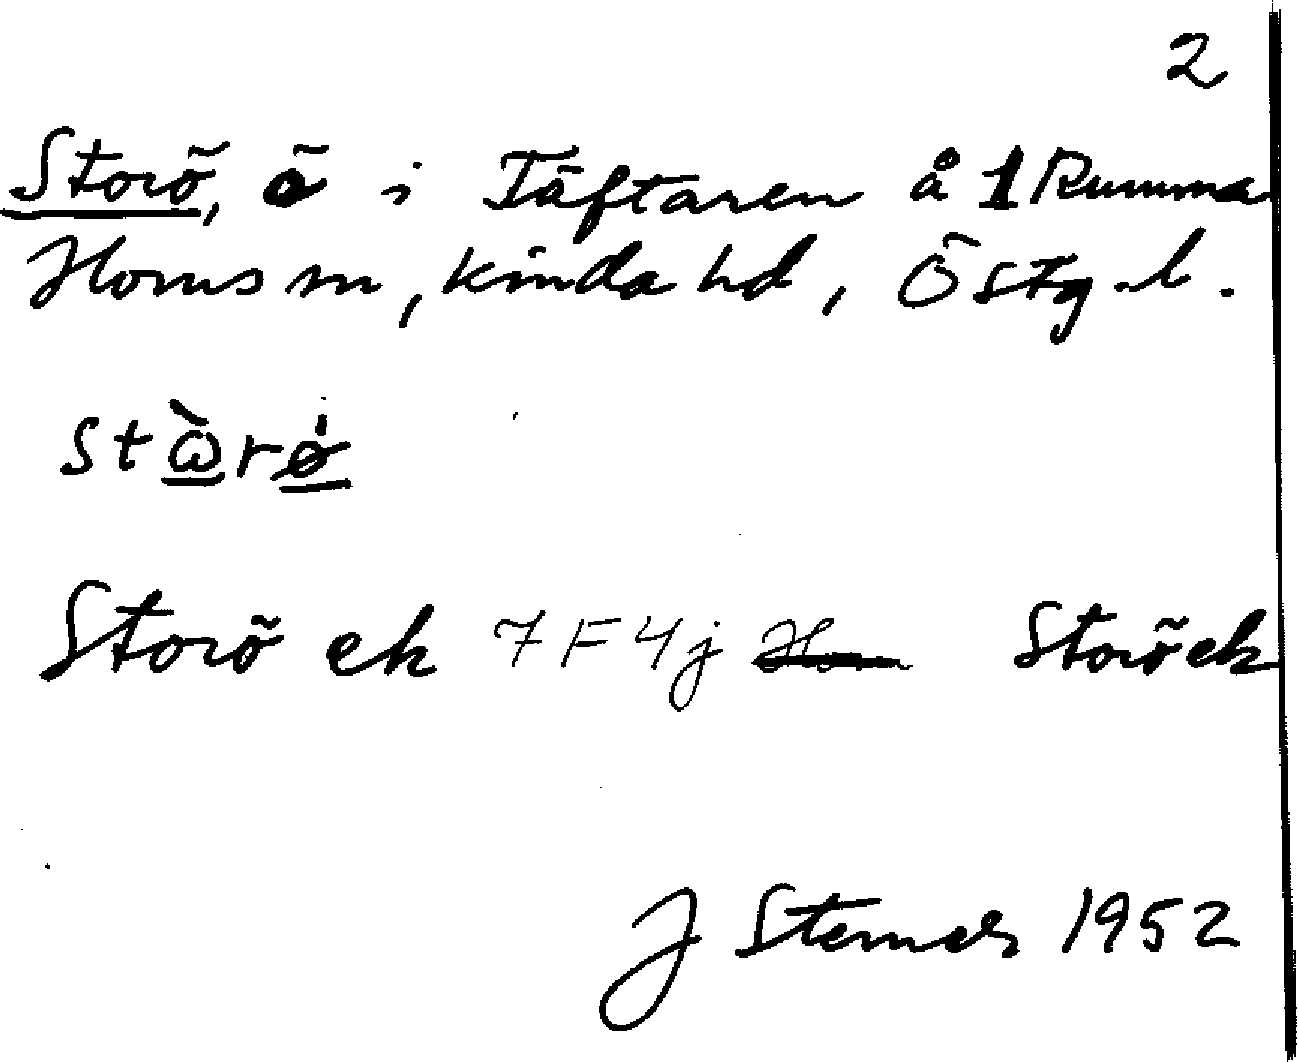 2
Storö, ö i Täftaren å 1 Rumma
Horns sn, Kinda hd, Östg. l.
stὼrø̍
Storö ek 7F4j Storö ek
J Sterner 1952